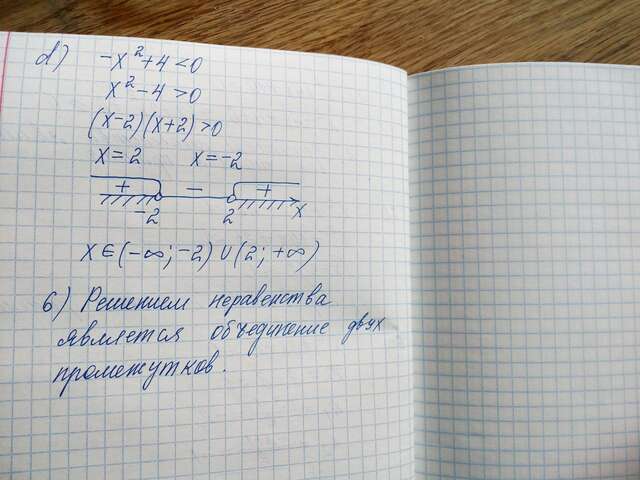 d) -x²+4<0
x²-4>0
(x-2)(x+2)>0
x=2 x=-2
+ - +
-2 2 x
x∈(-∞;-2)∪(2;+∞)
6) Решением неравенства
является объединение двух
промежутков.